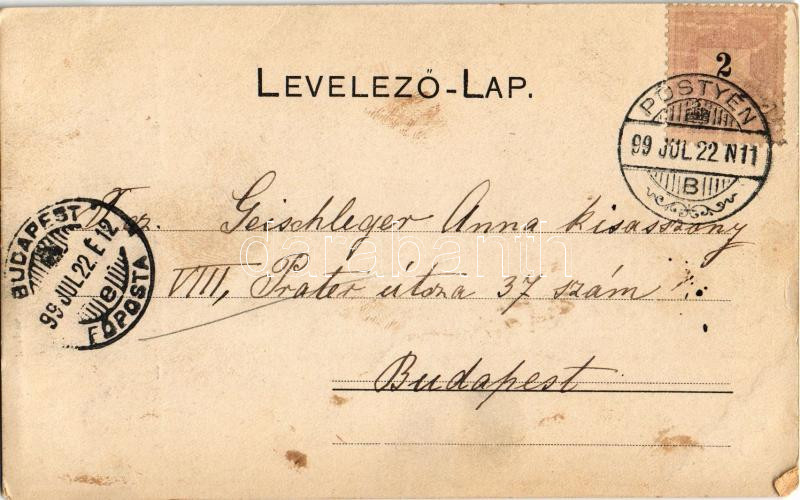 LEVELEZŐ-LAP.
2
PÖSTYÉN
99 JUL. 22 N11
B
BUDAPEST
99 JUL. 22. É 12
e
FŐPOSTA
Geischleger Anna kisasszony
VIII, Prater útsza 37 szám
Budapest
darabanth